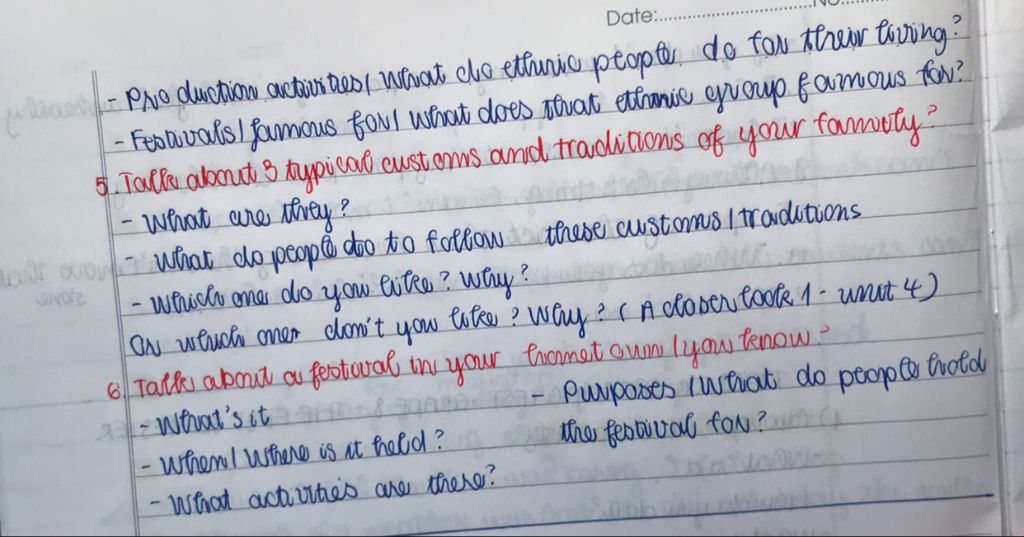 Date:.......................... No
- Production activities/ What do ethnic people do for their living?
- Festivals/famous for/ What does that ethnic group famous for?
5. Talk about 3 typical customs and traditions of your family?
- What are they?
- What do people do to follow these customs/traditions
- Which one do you like? Why?
Or which one don't you like? Why? (A closer look 1 - unit 4)
6. Talk about a festival in your hometown/you know?
- What's it
- When/ Where is it held?
- What activities are there?
- Purposes/What do people hold
the festival for?